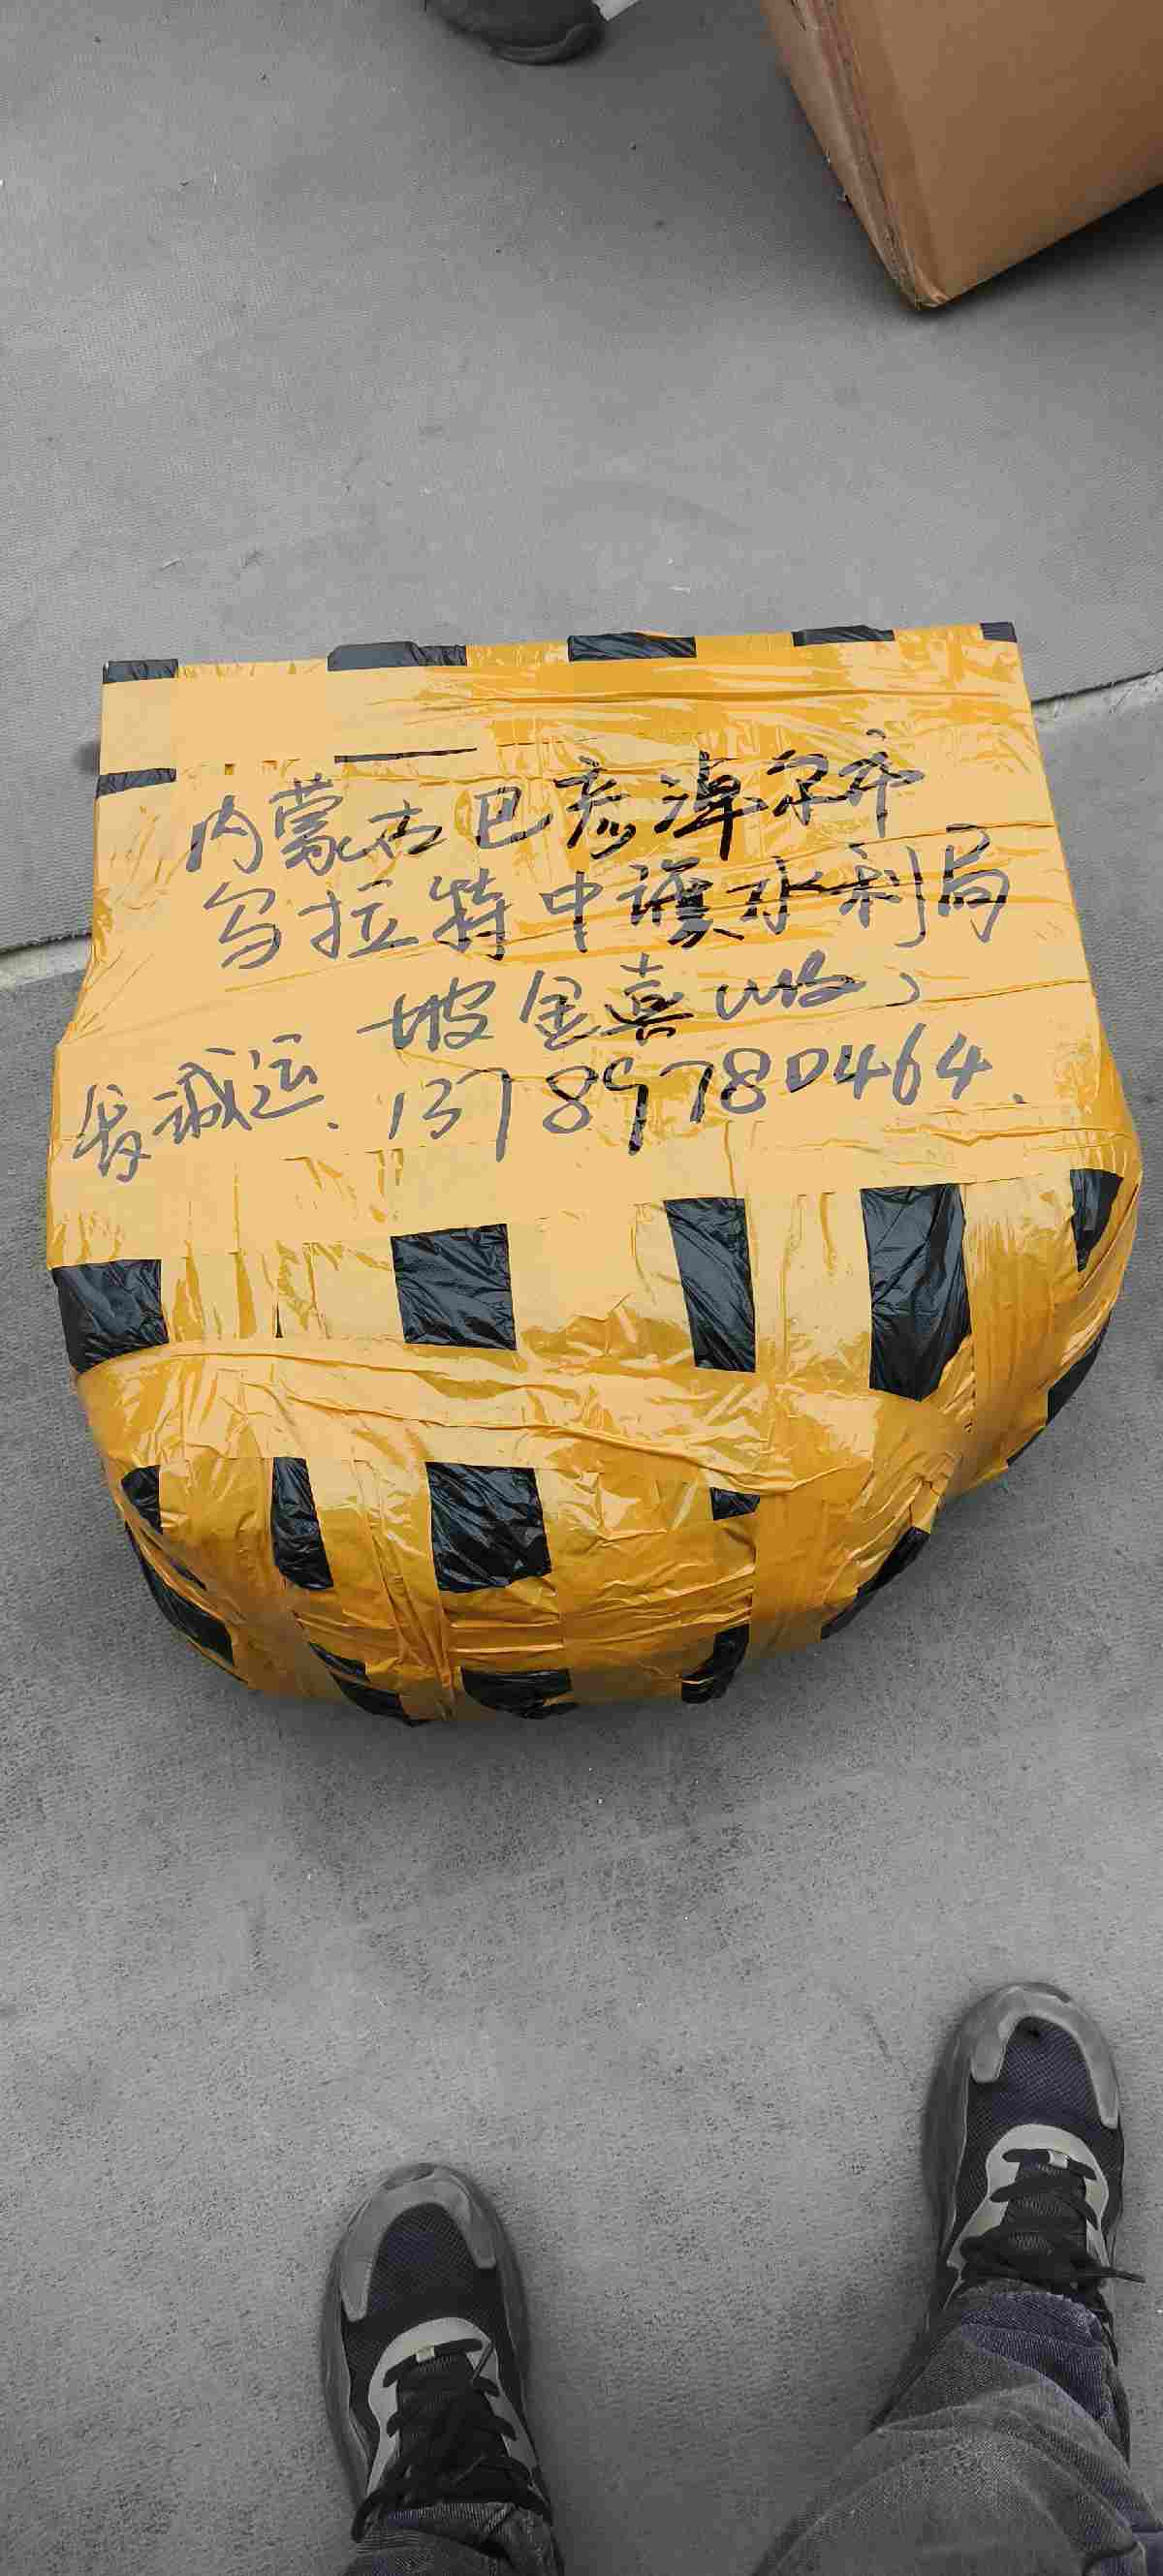 内蒙古巴彦淖尔市
乌拉特中旗水利局
坡金喜(收)
诚运. 13789780464.